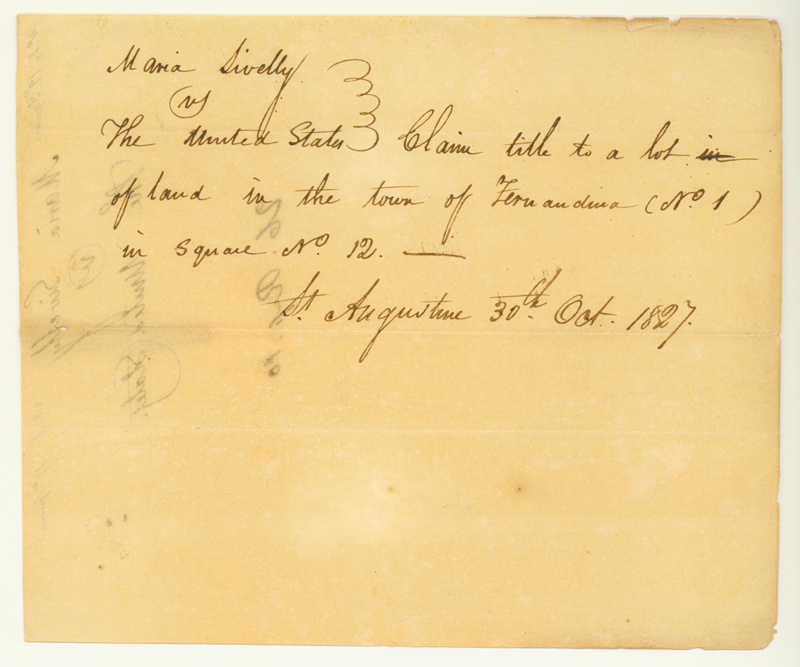 Maria Sivelly
vs
The United States Claim title to a lot in
of land in the town of Fernandina (No. 1)
in Square No. 12. —
St. Augustine 30th. Oct. 1827.
Maria Sivelly
vs
The United States